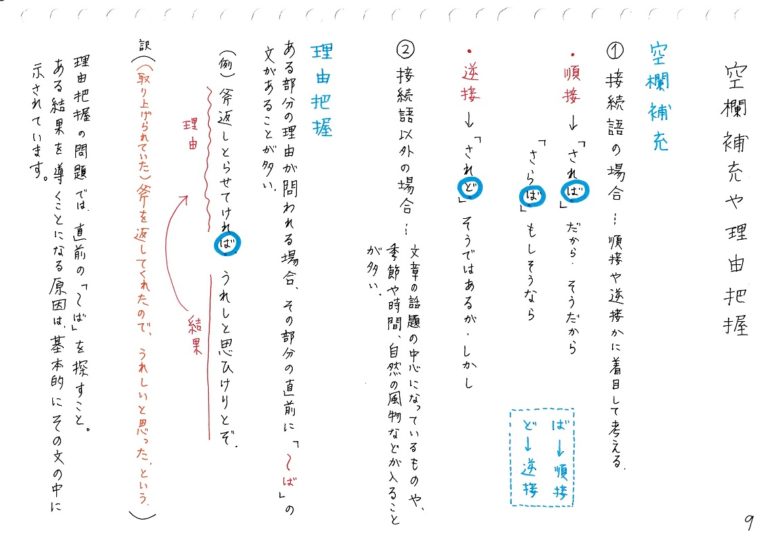 空欄補充や理由把握
空欄補充
① 接続語の場合…順接や逆接かに着目して考える。
・順接→「されば」だから・そうだから
「さらば」もしそうなら
・逆接→「されど」そうではあるが・しかし
ば→順接
ど→逆接
② 接続語以外の場合…文章の話題の中心になっているものや、
季節や時間、自然の風物などが入ること
が多い。
理由把握
ある部分の理由が問われる場合、その部分の直前に「〜ば」の
文があることが多い。
(例) 斧返しとらせてければ、うれしと思ひけりとぞ。
理由
結果
訳 (（取り上げられていた）斧を返してくれたので、うれしいと思った、という。)
理由把握の問題では、直前の「〜ば」を探すこと。
ある結果を導くことになる原因は、基本的にその文の中に
示されています。
9